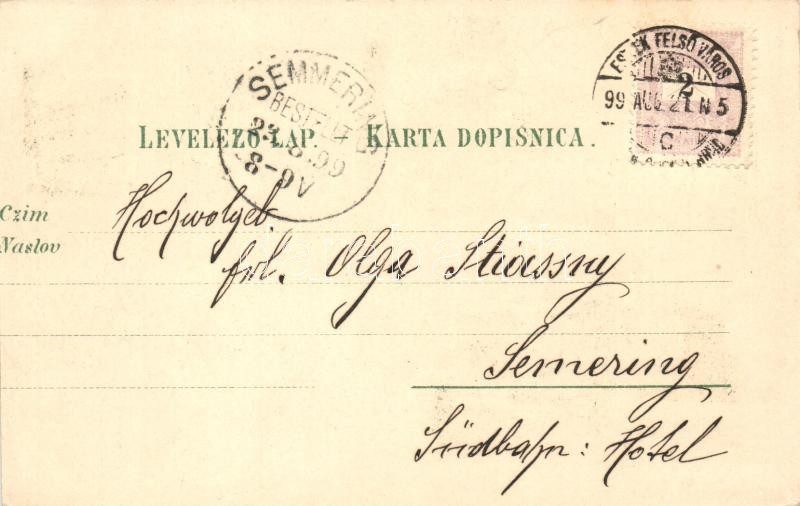 ESZÉK FELSŐ VÁROS
2
99 AUG. 21. N 5
C
SEMMERING
BESTELLT
23.8.99
8-9V
LEVELEZŐ-LAP. KARTA DOPISNICA.
Czim
Naslov
Hochwolgeb.
frl. Olga Stiassny
Semering
Südbahn: Hotel